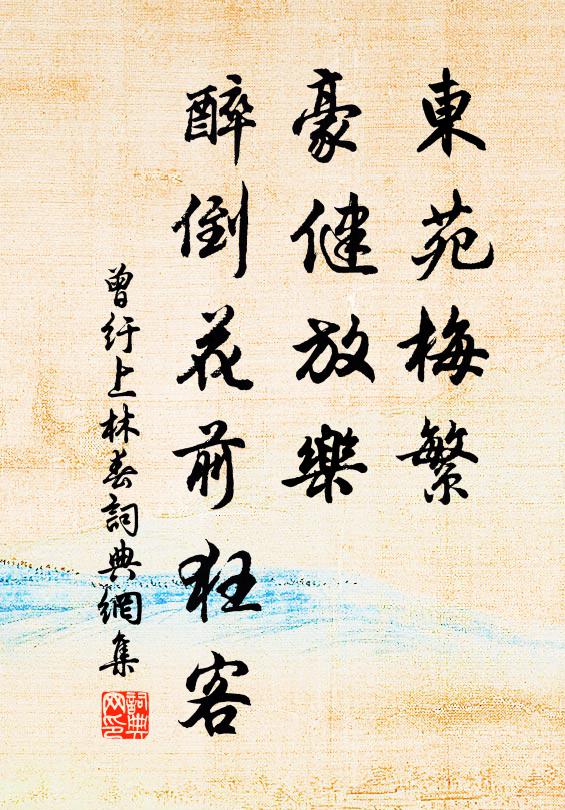 東苑梅繁
豪健放樂
醉倒花前狂客
曾紆上林春詞典網集
詞典網印